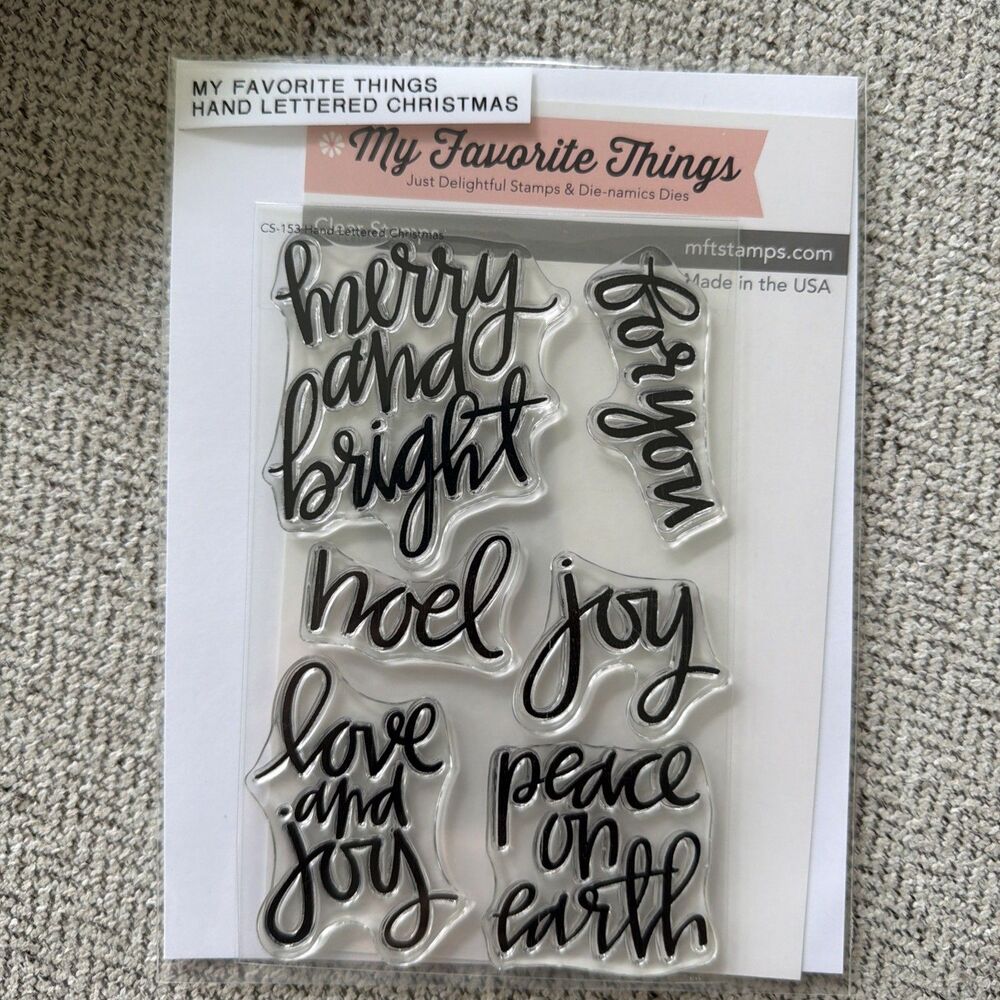 MY FAVORITE THINGS
HAND LETTERED CHRISTMAS
My Favorite Things
Just Delightful Stamps & Die-namics Dies
Clear St
CS-153 Hand Lettered Christmas
mftstamps.com
Made in the USA
merry
and
bright
for you
noel
joy
love
and
joy
peace
on
earth